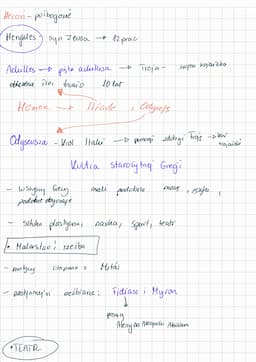 Heron - półbogowie
Herkules - syn Zeusa → 12 prac
Achilles → pięta achillesa → Troja - wojna trojańska
trwało 10 lat
Homer → Iliada i Odyseja
Odyseusz - Król Itaki → pomógł zdobyć Troję → koń trojański
Kultura starożytnej Grecji
- Wszyscy Grecy mieli podobną mowę, religię,
podobne obyczaje
- sztuka plastyczna, nauka, sport, teatr
• Malarstwo i rzeźba
- motywy czerpane z Mitów
- rzeźbiarze: Fidiasz i Myron
posąg
Ateny na Akropolu
• TEATR